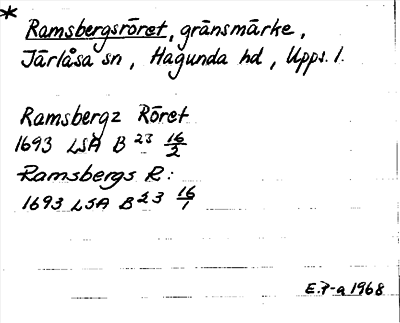 * Ramsbergsröret, gränsmärke,
Järlåsa sn, Hagunda hd, Upps. l.
Ramsbergz Röret
1693 LSA B 23 16/2
Ramsbergs R:
1693 LSA B 23 16/1
E.P-a 1968